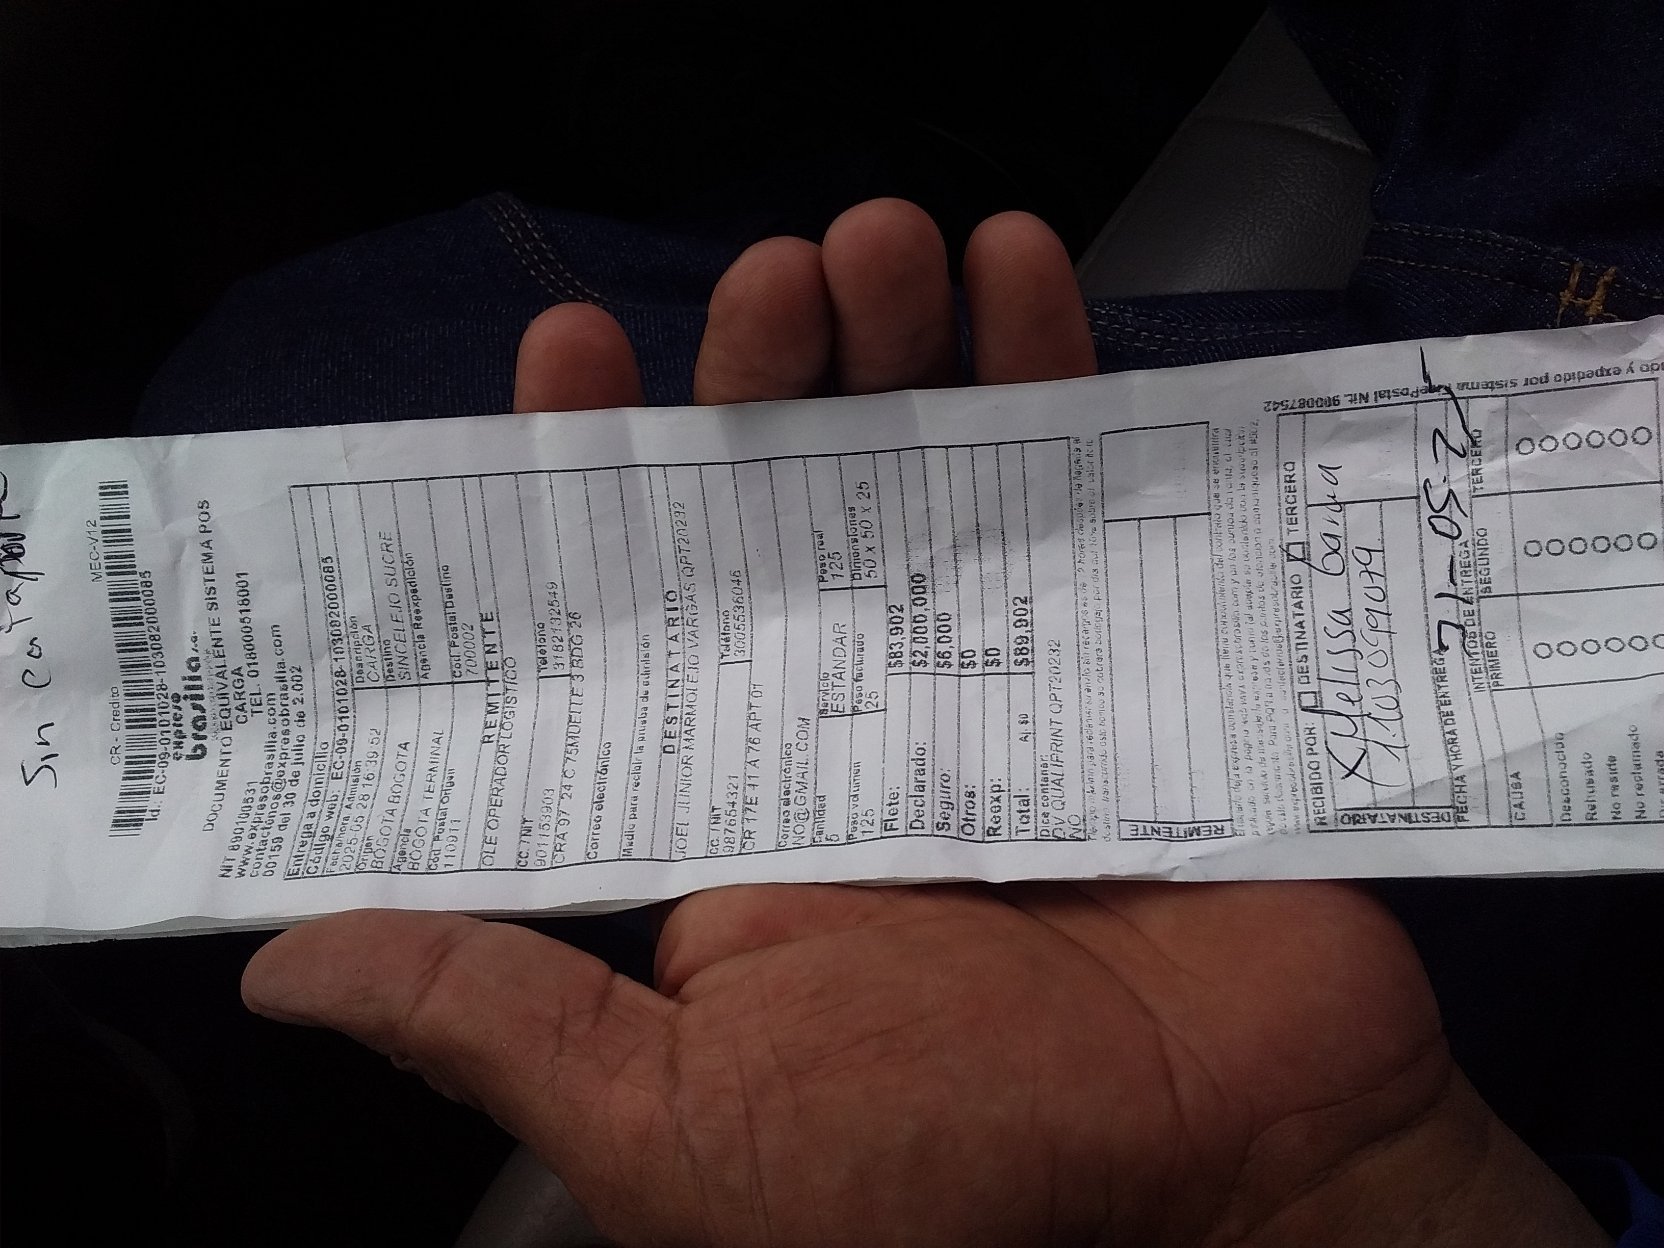 Sin
CR - Credito
MEC-V12
Id.: EC-09-0101028-1030820000085
expreso
brasilia s.a.
DOCUMENTO EQUIVALENTE SISTEMA POS
NIT 890100531
CARGA
www.expresobrasilia.com
TEL. 018000518001
contactenos@expresobrasilia.com
00159 del 30 de julio de 2.002
Entrega a domicilio
Código web: EC-09-0101028-1030820000085
Fecha/hora Admisión
Descripción
2025-05-28 16:39:52
CARGA
Origen
Destino
BOGOTA BOGOTA
SINCELEJO SUCRE
Agencia
Agencia Reexpedición
BOGOTA TERMINAL
Cod. Postal Origen
Cod. Postal Destino
110911
700002
REMITENTE
OLE OPERADOR LOGISTICO
CC / NIT
Teléfono
901153903
3182132549
CRA 97 24 C 75MUENTE 3 BDG 26
Correo electrónico
Medio para recibir la prueba de admisión
DESTINATARIO
JOEL JUNIOR MARMOLEJO VARGAS QPT20232
CC / NIT
Teléfono
987654321
3005536046
CR 17E 41 A 76 APT 01
Correo electrónico
NO@GMAIL.COM
Cantidad
Servicio
Peso real
5
ESTANDAR
125
Peso volumen
Peso facturado
Dimensiones
125
25
50 x 50 x 25
Flete: $83,902
Declarado: $2,000,000
Seguro: $6,000
Otros: $0
Reexp: $0
Total: Aj. $0 $89,902
Dice contener:
DV QUALIFRINT QPT20232
NO
REMITENTE
RECIBIDO POR: DESTINATARIO TERCERO
Melissa
DESTINATARIO
FECHA Y HORA DE ENTREGA
31-05-2
INTENTOS DE ENTREGA
PRIMERO SEGUNDO TERCERO
CAUSA
Desconocido
Rehusado
No reside
No reclamado
y expedido por sistema
Postal Nit. 900087542